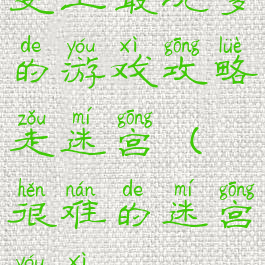 de yóu xì gōng luè
的游戏攻略
zǒu mí gōng
走迷宫（
hěn nán de mí gōng
很难的迷宫
yóu xì